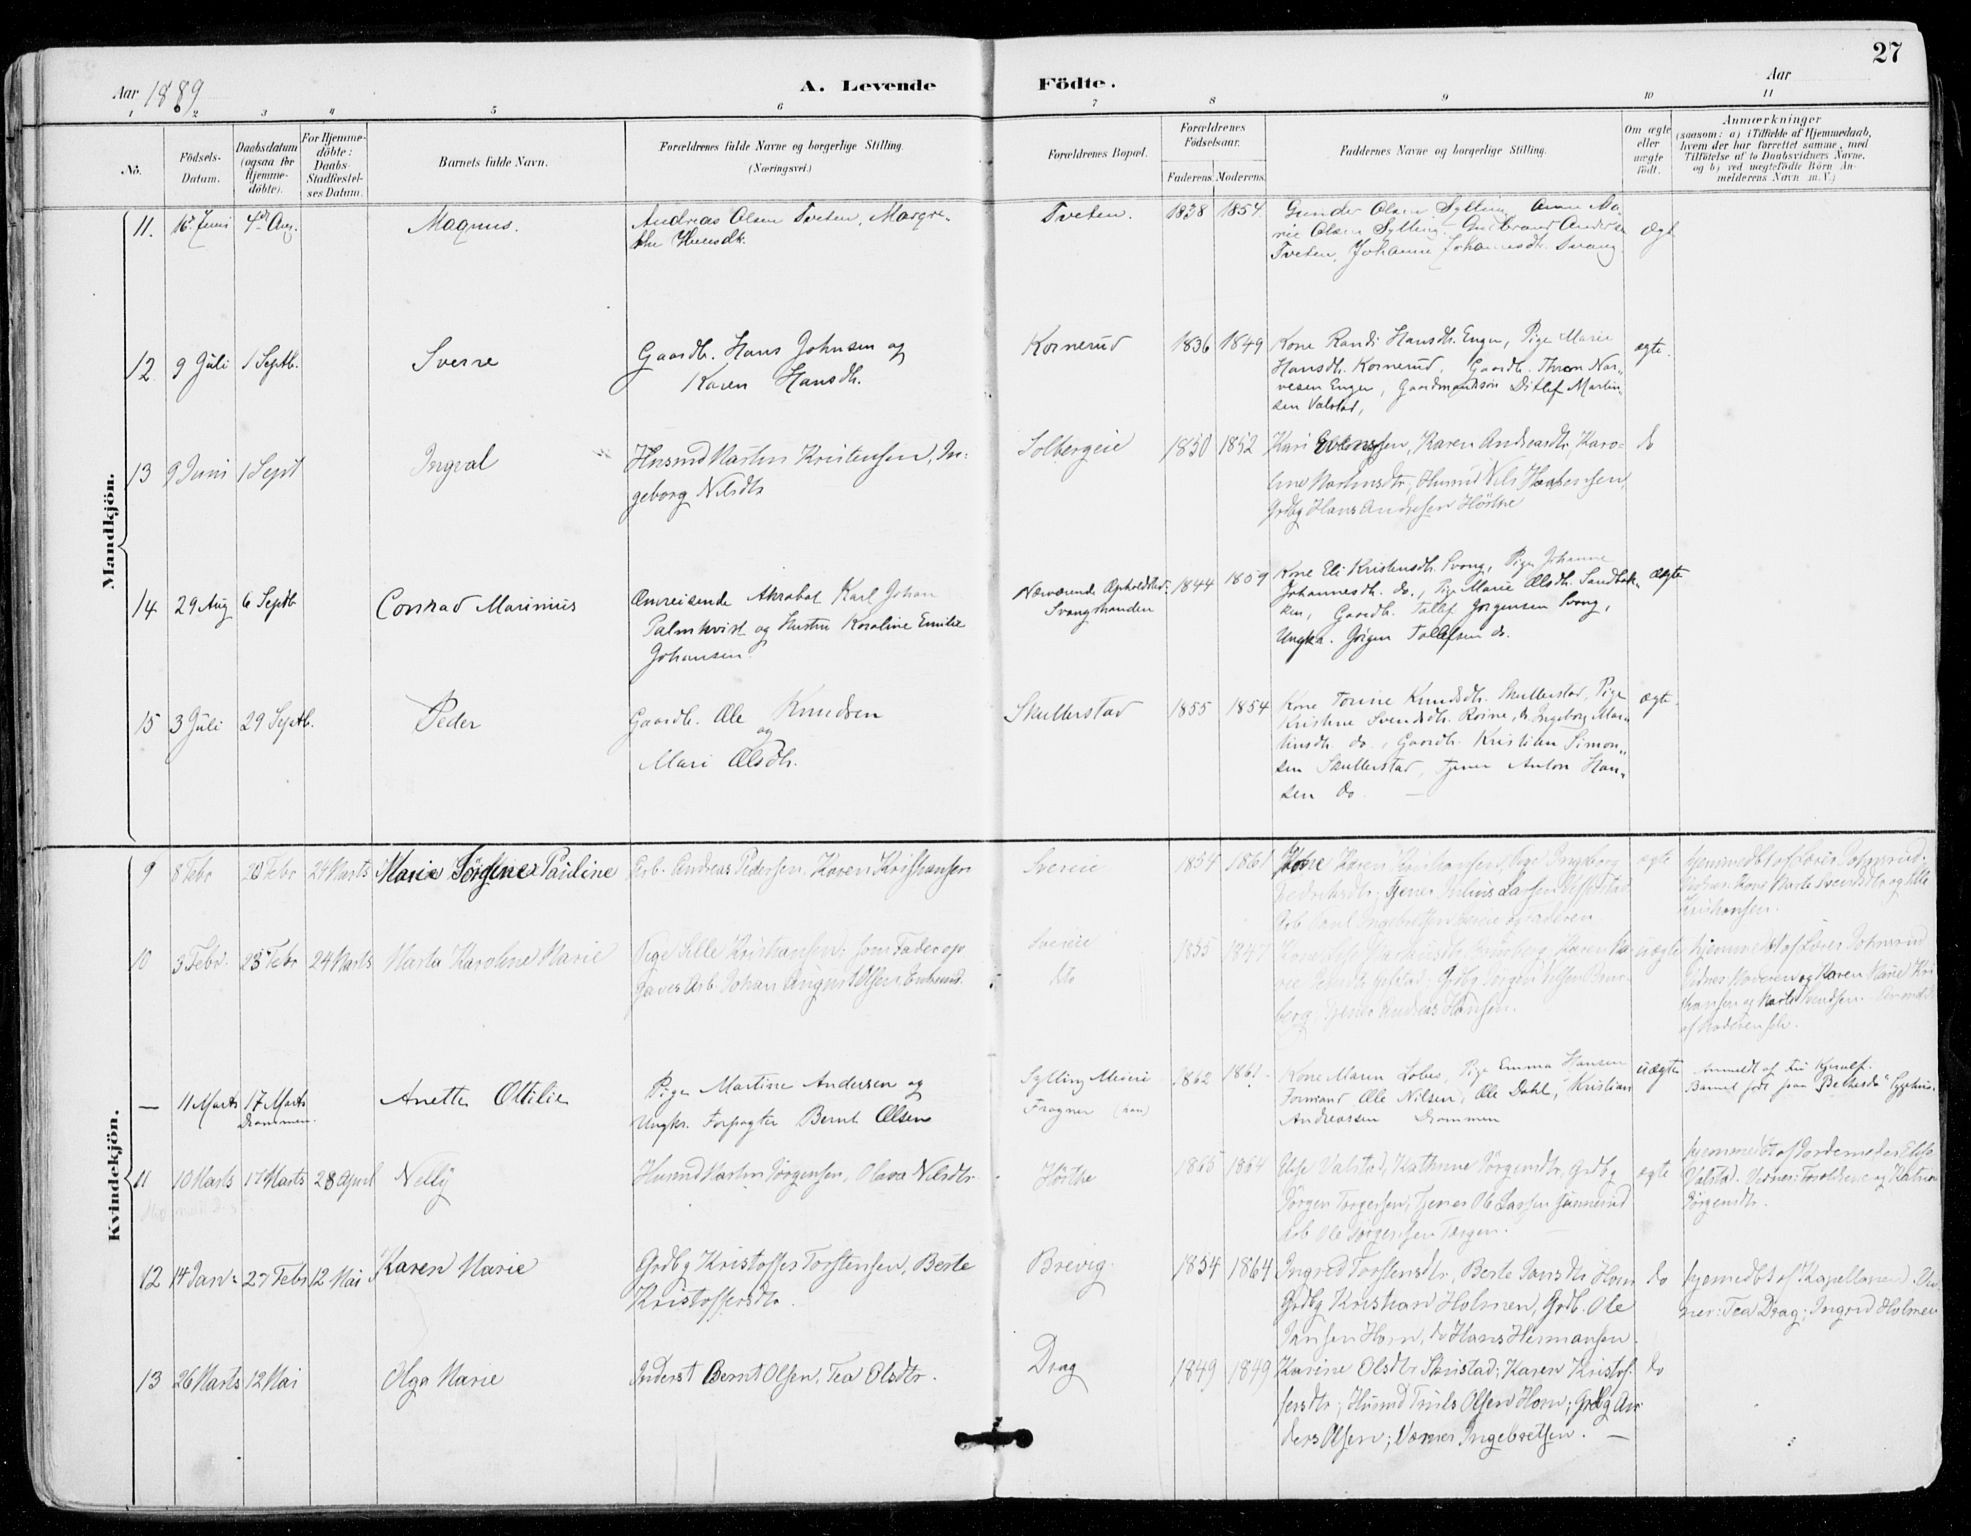 27
Aar 1889
A. Levende Födte.
Aar
1 2 3 4 5 6 7 8 9 10 11
Nö.
Födsels-Datum.
Daabsdatum (ogsaa for Hjemme-döbte).
For Hjemme-döbte: Daabs-Stadfæstel-ses Datum.
Barnets fulde Navn.
Forældrenes fulde Navne og borgerlige Stilling.
(Næringsvei.)
Forældrenes Bopæl.
Forældrenes Födselsaar.
Faderens. Moderens.
Faddernes Navne og borgerlige Stilling.
Om ægte eller uægte födt.
Anmærkninger
(saasom: a) i Tilfælde af Hjemmedaab, hvem der har forrettet samme, med Tilföielse af to Daabsvidners Navne, og b) ved uægtefödte Börn An-melderens Navn m. V.)
Mandkjön.
11. 16 Juni 4de Aug. Magnus. Andreas Olsen Tveten, Margre-
the Hansdtr. Tveten. 1838 1854. Gunder Olsen Sylling, Anne Ma-
rie Olsen Sylling, Gulbrand Anders.
Tveten, Johanne Johannesdtr. Svang. Ægt.
12. 9 Juli 1 Septb. Sverre Gaardb. Hans Johnsen og
Karen Hansdtr. Kornerud 1836 1849 Kone Randi Hansdtr. Enger, Pige Marie
Hansdtr. Kornerud, Gaardb. Thron Nar-
vesen Enger, Gaardmandssön Ditlef Martin-
sen Valstad, ægte.
13 9 Juni 1 Sept Ingval Husmd Martin Kristensen, In-
geborg Nilsdtr Solbergeie 1850 1852 Kari Evensen, Karen Andreasdtr, Karo-
line Martinsdtr, Husmd Nils Hansen,
Grdbg Hans Andresen Hörthe do
14 29 Aug 6 Septb Conrad Marinius Omreisende Akrobat Karl Johan
Palmkvist og Hustru Karoline Emilie
Johansen. Nærværende Opholdsted:
Svangstranden 1844 1859 Kone Eli Kristensdtr. Svang, Pige Johanne
Johannesdtr. do., Pige Marie Olsdtr. Sandbak-
ken, Gaardb. Tollef Jörgensen Svang,
Ungka. Jörgen Tollefsen do. Ægte
15 3 Juli 29 Septb. Peder Gaardb. Ole Knudsen
og
Mari Olsdtr. Skullerstad 1855 1854 Kone Torine Knudsdtr. Skullerstad, Pige
Kristine Svendsdtr. Roine, do Ingeborg Mar-
tinsdtr. do., Gaardb. Kristian Simon-
sen Skullerstad, Tjener Anton Han-
sen do. ægte.
Kvindekjön.
9 8 Febr 20 Febr 24 Marts Marie Jörgine Pauline Arb. Andreas Pedersen, Karen Kristiansen Svereie 1854 1861 Kone Karen Kristiansen, Pige Ingeborg
Fredriksdtr, Tjener Julius Larsen
Arb Paul Ingebretsen Svereie og Faderen ægte hjemmedbt af Sören Johnsrud.
Vidner: Kone Marte Svendsdtr og Sille
Kristiansen.
10 3 Febr. 23 Febr 24 Marts Marta Karoline Marie Pige Sille Kristiansen; som Fader op-
gives Arb Johan August Olsen Svereie
dto 1855 1847 uægte hjemmedbt af Sören Johnsrud
Vidner Moderen og Karen Marie Kri-
stiansen og Marte Svendsen. Anmeldt
af Moderen selv.
— 11 Marts 17 Marts
Drammen. Anette Ottilie Pige Martine Andersen og
Ungkr. Forpagter Bernt Olsen Sylling Meieri
Fragner (han) 1862 1861 Kone Maren Lobes, Pige Emma Hansen
Formand Ole Nilsen, Ole Dahl, Kristian
Andreassen Drammen uægte Anmeldt af
Barnet födt paa "Bethesda"
11 10 Marts 17 Marts 28 April Nelly Husmd Martin Jörgensen, Olava Nilsdtr Hörthe 1865 1864 Else Valstad, Kathrine Jörgensdtr, Grdbg
Jörgen Torgersen, Tjener Ole Larsen
Arb Ole Jörgensen ægte hjemmedbt af Jordemoder Else
Valstad. Vidner: Forældrene og Katrine
Jörgensdtr.
12 14 Jan. 27 Febr 12 Mai Karen Marie Grdbg Kristoffer Torstensen, Berte
Kristoffersdtr. Brevig. 1854 1864 Ingred Torstensdtr, Berte Jansdtr Horn
Grdbg Kristian Holmen, Grdb. Ole
Jansen Horn, do Hans Hermansen. do hjemmedbt af Kapellanen. Vid-
ner: Tea Drag; Ingrid Holmen
13 26 Marts 12 Mai Olga Marie Inderst Bernt Olsen, Tea Olsdtr. Drag 1849 1849 Karine Olsdtr Skristad; Karen Kristof-
fersdtr; Husmd Truls Olsen Horn; Grdbg An-
ders Olsen; Verner Ingebretsen. — do